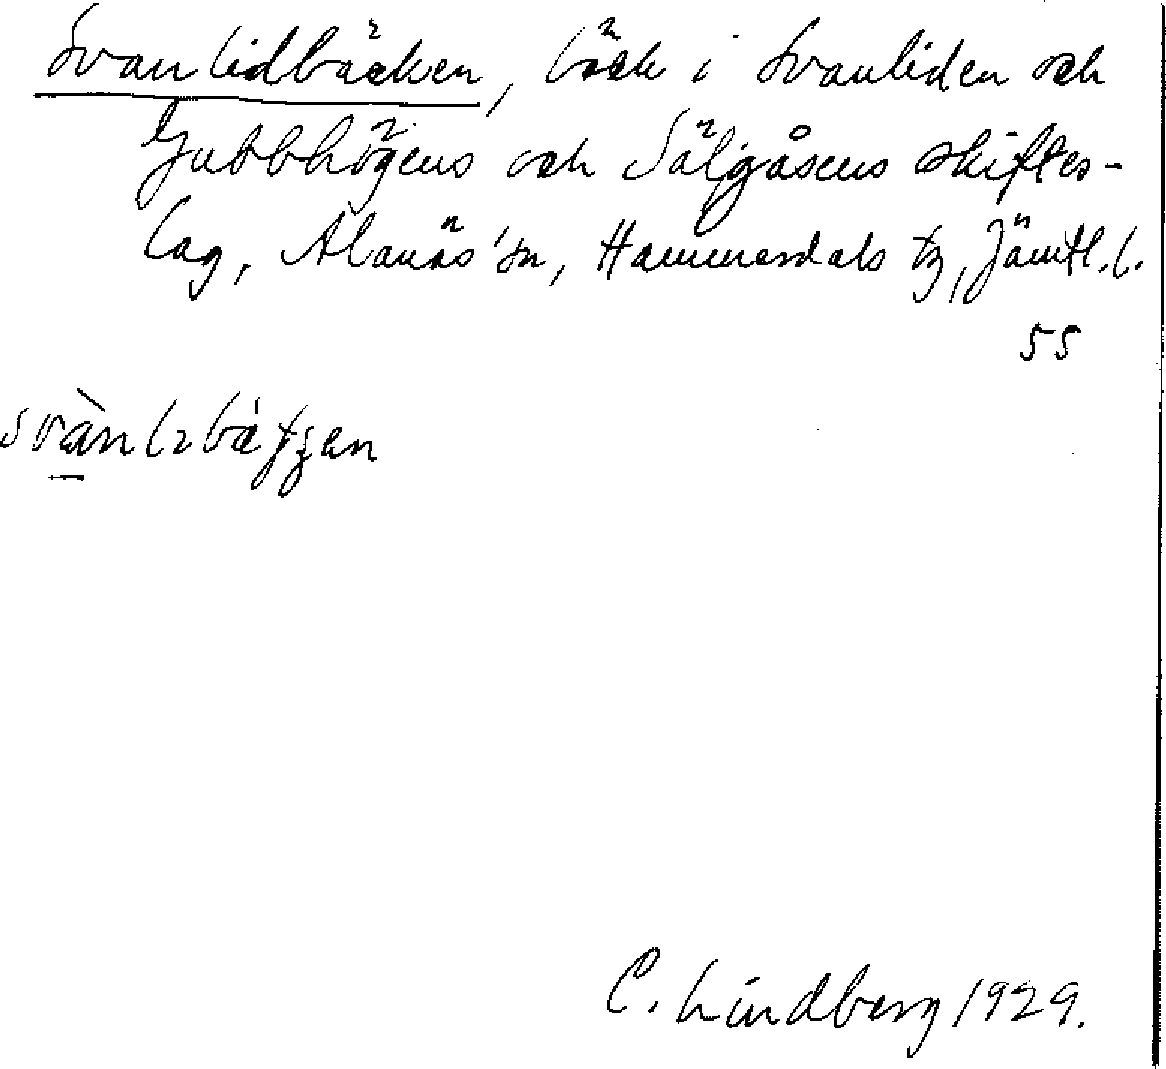 Svanlidbäcken, bäck i Svanliden och
Gubbhögens och Sälgåsens skiftes-
lag, Alanäs sn, Hammerdals tg, Jämtl. l.
55
C. Lindberg 1929.